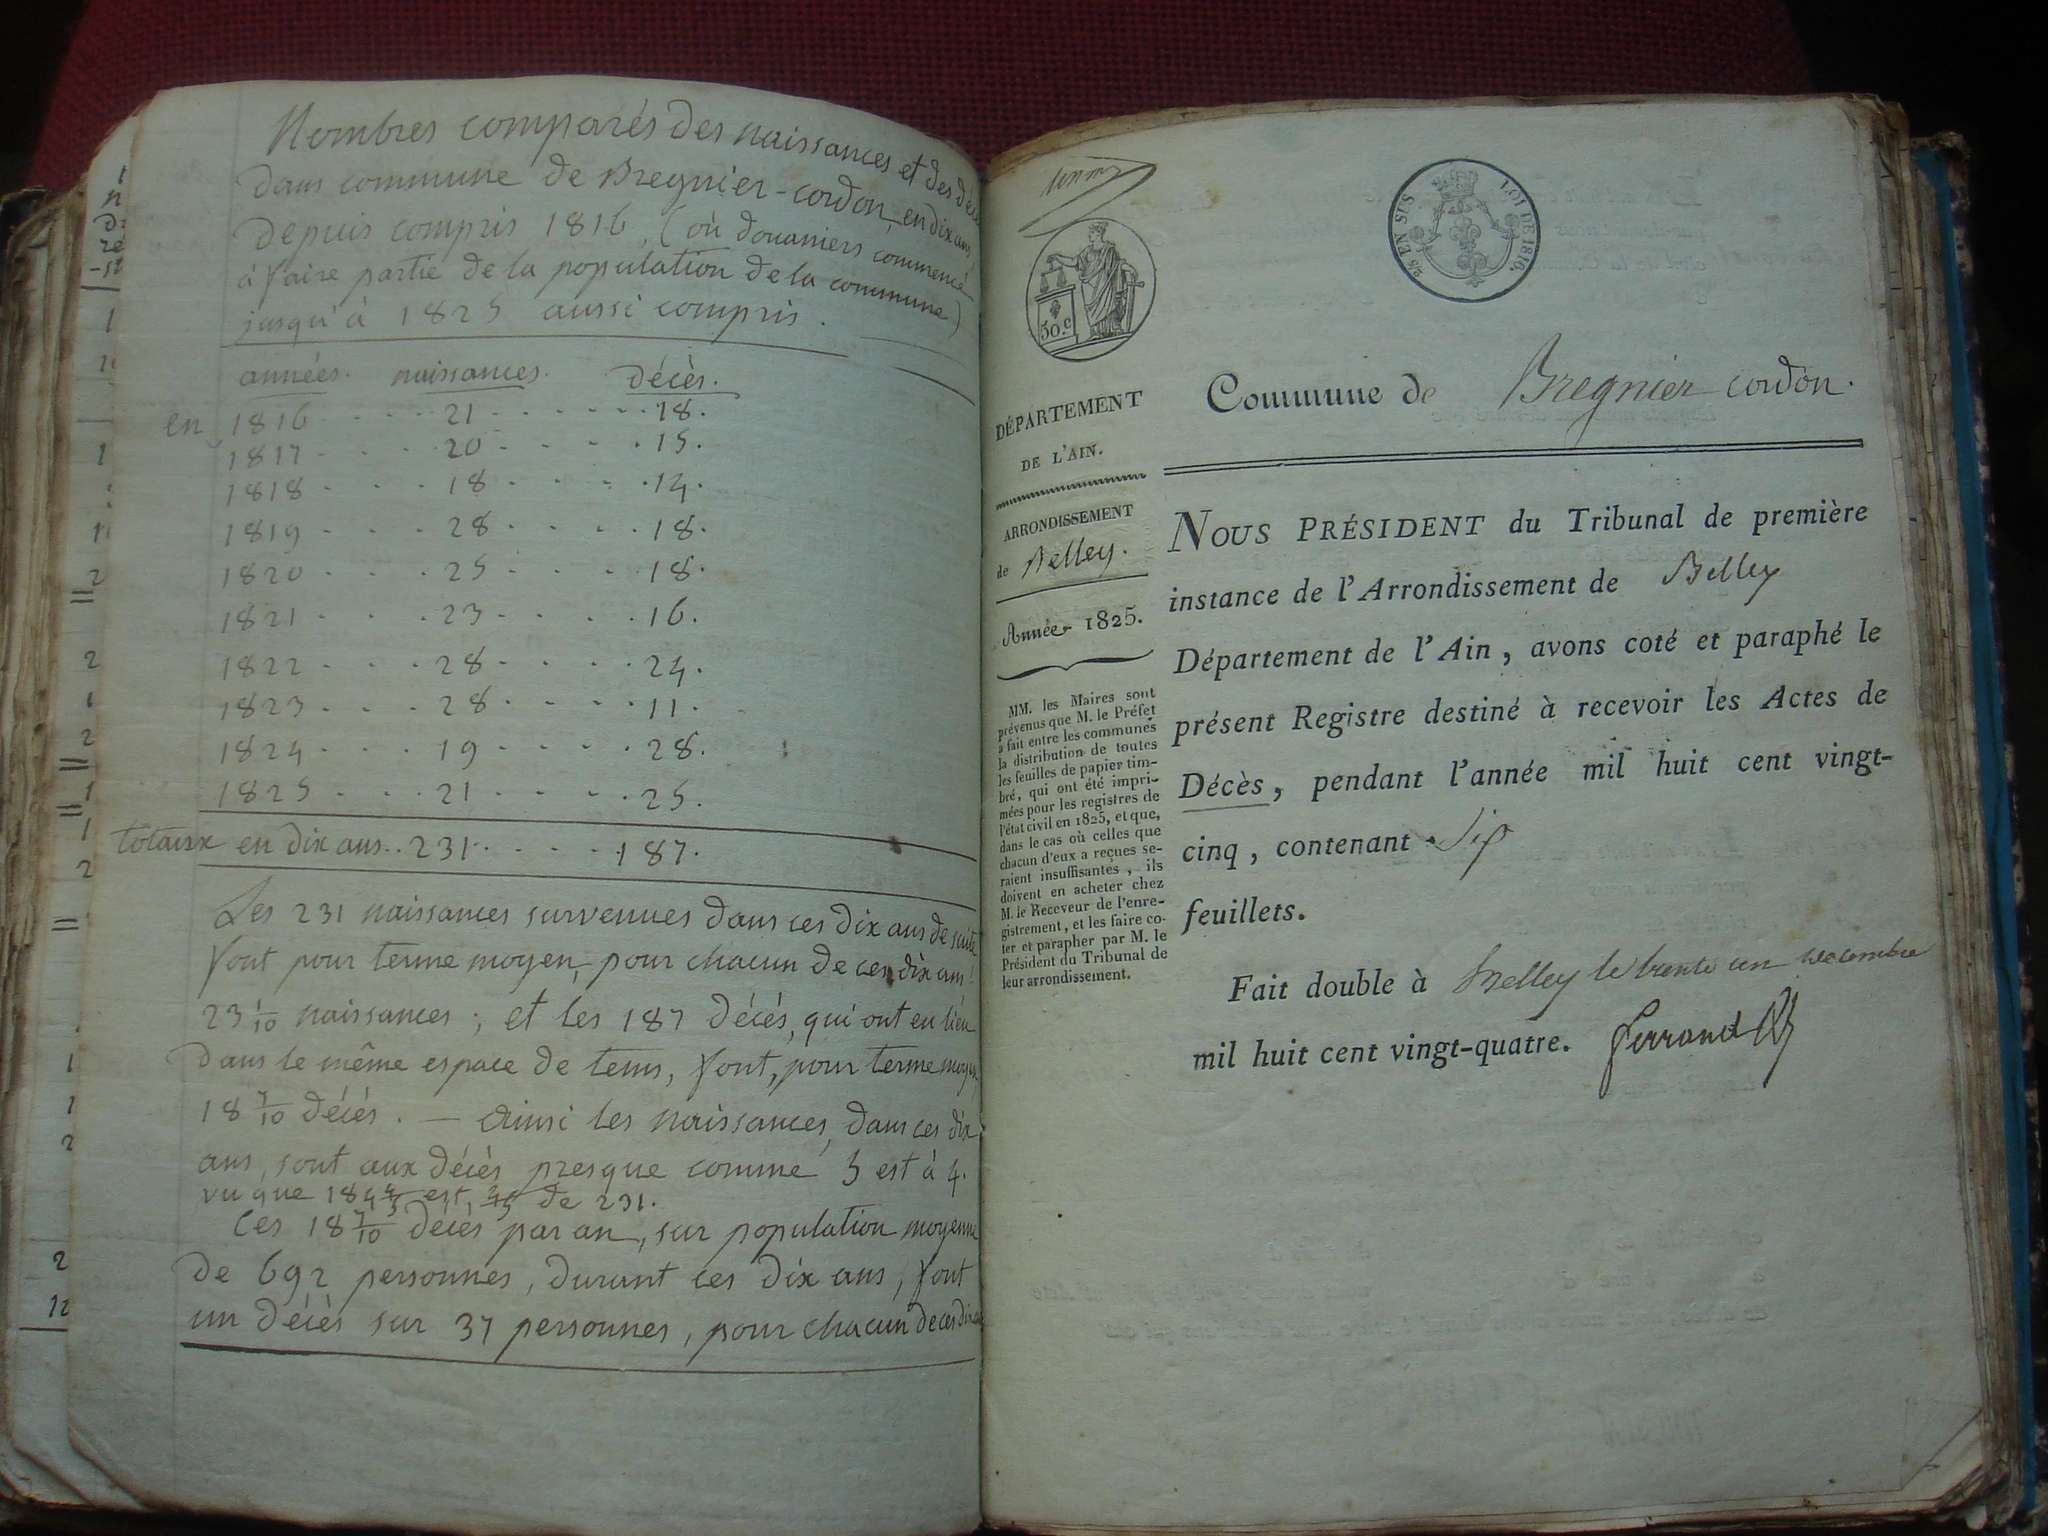 Nombres comparés des naissances et des décès
dans commune de Bregnier-cordon, en dix ans,
depuis compris 1816, (où douaniers commencé
à faire partie de la population de la commune)
jusqu'à 1825 aussi compris.
années. naissances. décès.
en 1816 21 18.
1817 20 15.
1818 18 14.
1819 28 18.
1820 25 18.
1821 23 16.
1822 28 24.
1823 28 11.
1824 19 28.
1825 21 25.
totaux en dix ans.. 231. 187.
Les 231 naissances survenues dans ces dix ans de suite
font pour terme moyen, pour chacun de ces dix ans:
23 1/10 naissances; et les 187 décés, qui ont eu lieu
dans le même espace de tems, font, pour terme moyen
18 7/10 décés. — Ainsi les naissances, dans ces dix
ans, sont aux décès presque comme 5 est à 4.
vu que 184 4/5 est, 4/5 de 231.
Ces 18 7/10 décés par an, sur population moyenne
de 692 personnes, durant ces dix ans, font
un décès sur 37 personnes, pour chacun de ces dix ans
25 EN SUS
LOI DE 1816.
50.c
DÉPARTEMENT
DE L'AIN.
ARRONDISSEMENT
de Belley.
Année 1825.
MM. les Maires sont
prévenus que M. le Préfet
a fait entre les communes
la distribution de toutes
les feuilles de papier tim-
bré, qui ont été impri-
mées pour les registres de
l'état civil en 1825, et que,
dans le cas où celles que
chacun d'eux a reçues se-
raient insuffisantes, ils
doivent en acheter chez
M. le Receveur de l'enre-
gistrement, et les faire co-
ter et parapher par M. le
Président du Tribunal de
leur arrondissement.
Commune de Bregnier cordon.
NOUS PRÉSIDENT du Tribunal de première
instance de l'Arrondissement de Belley
Département de l'Ain, avons coté et paraphé le
présent Registre destiné à recevoir les Actes de
Décès, pendant l'année mil huit cent vingt-
cinq, contenant Six
feuillets.
Fait double à Belley le trente un décembre
mil huit cent vingt-quatre. Ferrand